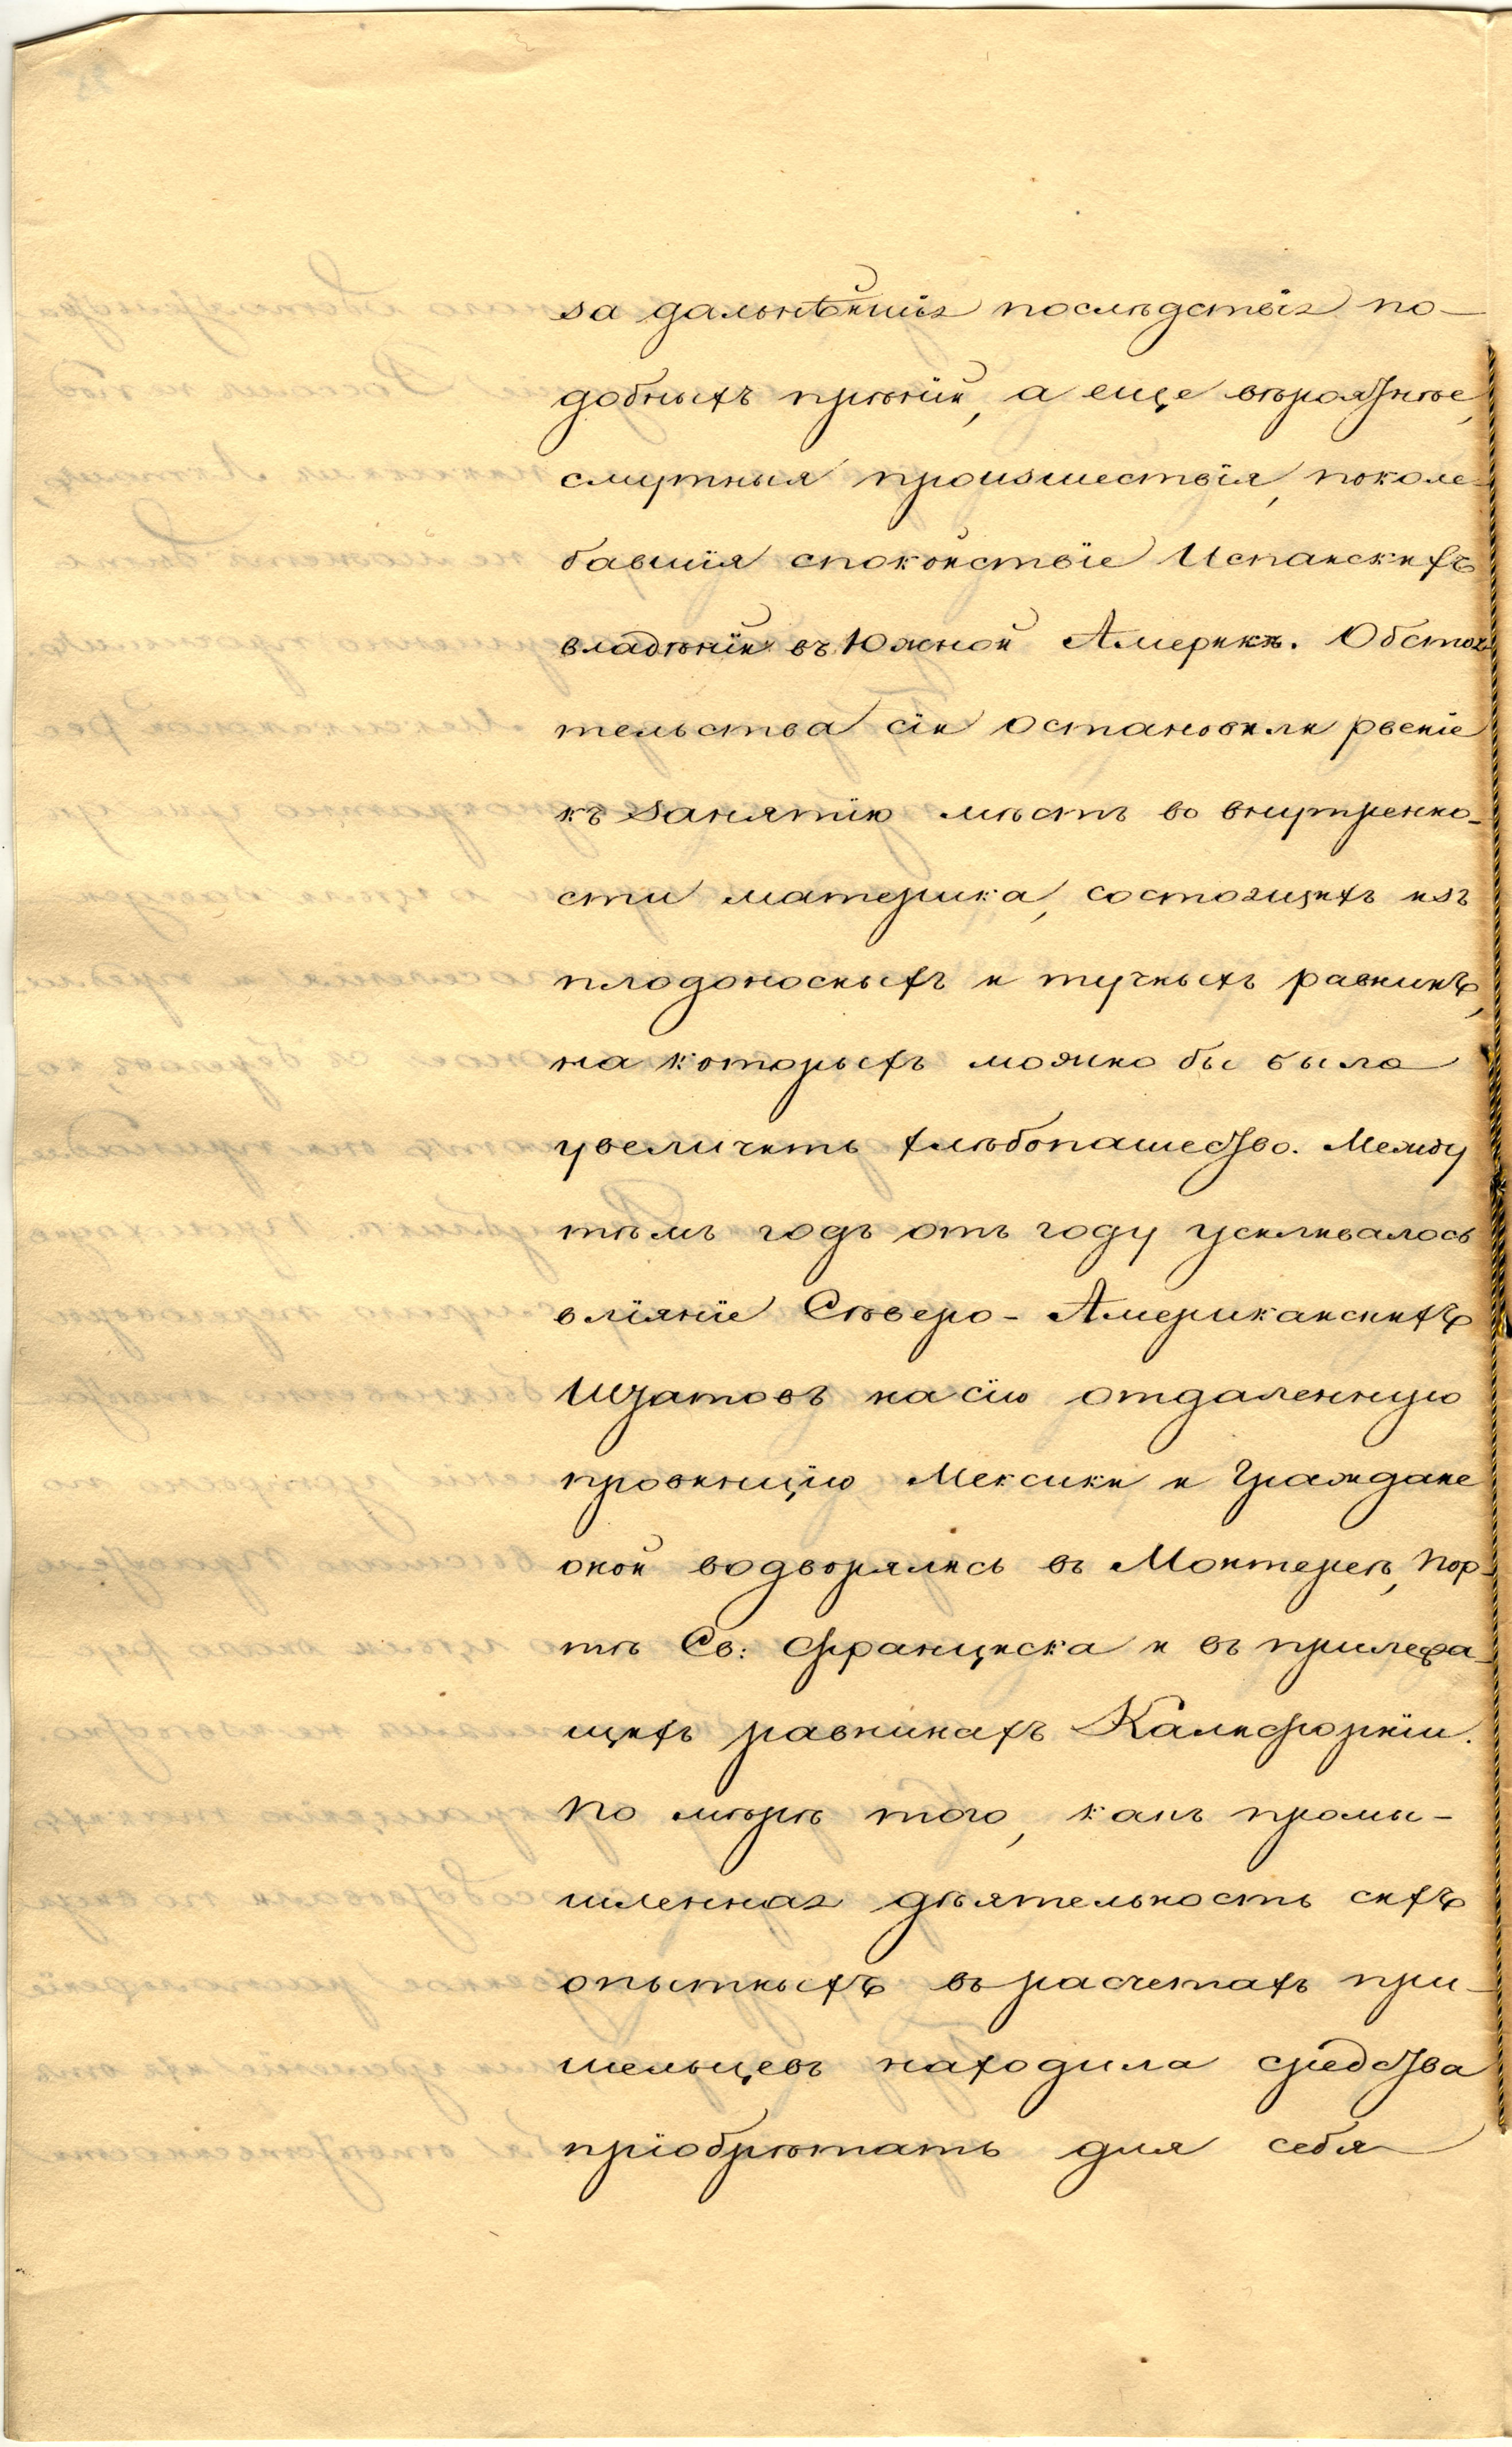 за дальнѣйшія послѣдствія по-
добныхъ прѣній, а еще вѣроятнѣе,
смутныя произшествія, поколе-
бавшія спокойствіе Испанскихъ
владѣній въ Южной Америкѣ. Обстоя
тельства сіи остановили рвеніе
къ занятію мѣстъ во внутренно-
сти материка, состоящихъ изъ
плодоносныхъ и тучныхъ равнинъ,
на которыхъ можно бы было
увеличить хлѣбопашество. Между
тѣмъ годъ отъ году усиливалось
вліяніе Сѣверо-Американскихъ
Штатовъ на сію отдаленную
провинцію Мексики и Граждане
оной водворялись въ Монтереѣ, Пор-
тѣ Св: Франциска и въ прилежа-
щихъ равнинахъ Калифорніи.
По мѣрѣ того, какъ промы-
шленная дѣятельность сихъ
опытныхъ въ расчетахъ при-
шельцевъ находила средства
пріобрѣтать для себя